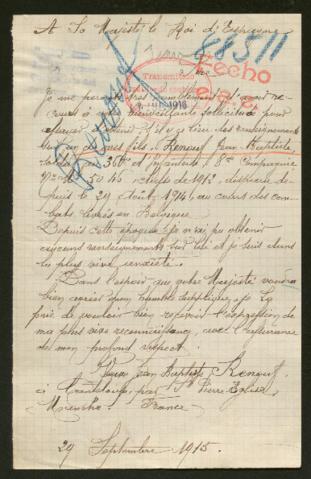 A Sa Majesté le Roi d'Espagne
88511
Transmitido
Hecho
Je me permets très humblement d'avoir re-
cours à votre bienveillante sollicitude pour
s'il y a lieu des renseignements
sur un de mes fils, Renouf Jean Baptiste
soldat 36me d'infanterie, 8me Compagnie
classe de 1912, disparu de-
puis le 29 Août 1914, au cours des com-
bats livrés en Belgique.
Depuis cette époque je n'ai pu obtenir
aucuns renseignements sur lui et je suis dans
la plus vive anxiété.
Dans l'espoir que votre Majesté voudra
bien agréer mon humble supplique, je La
prie de vouloir bien recevoir l'expression de
ma plus vive reconnaissance, avec l'assurance
de mon profond respect.
Jean Baptiste Renouf
à Canteloup, par St Pierre Eglise
Manche. France
29 Septembre 1915.